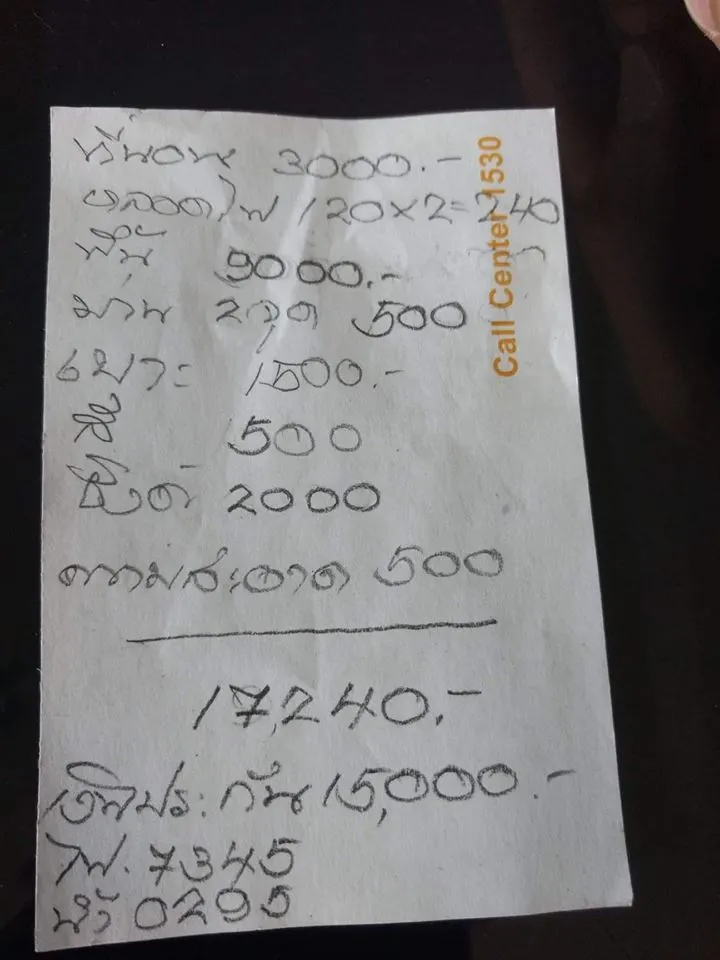 ที่นอน 3000.-
หลอดไฟ 120×2=240
พื้น 9000.-
ม่าน ขาด 500
เบาะ 1500.-
500
2000
ความสะอาด 500
17,240.-
เงินประกัน 15,000.-
ไฟ. 7345
น้ำ 0295
Call Center 1530